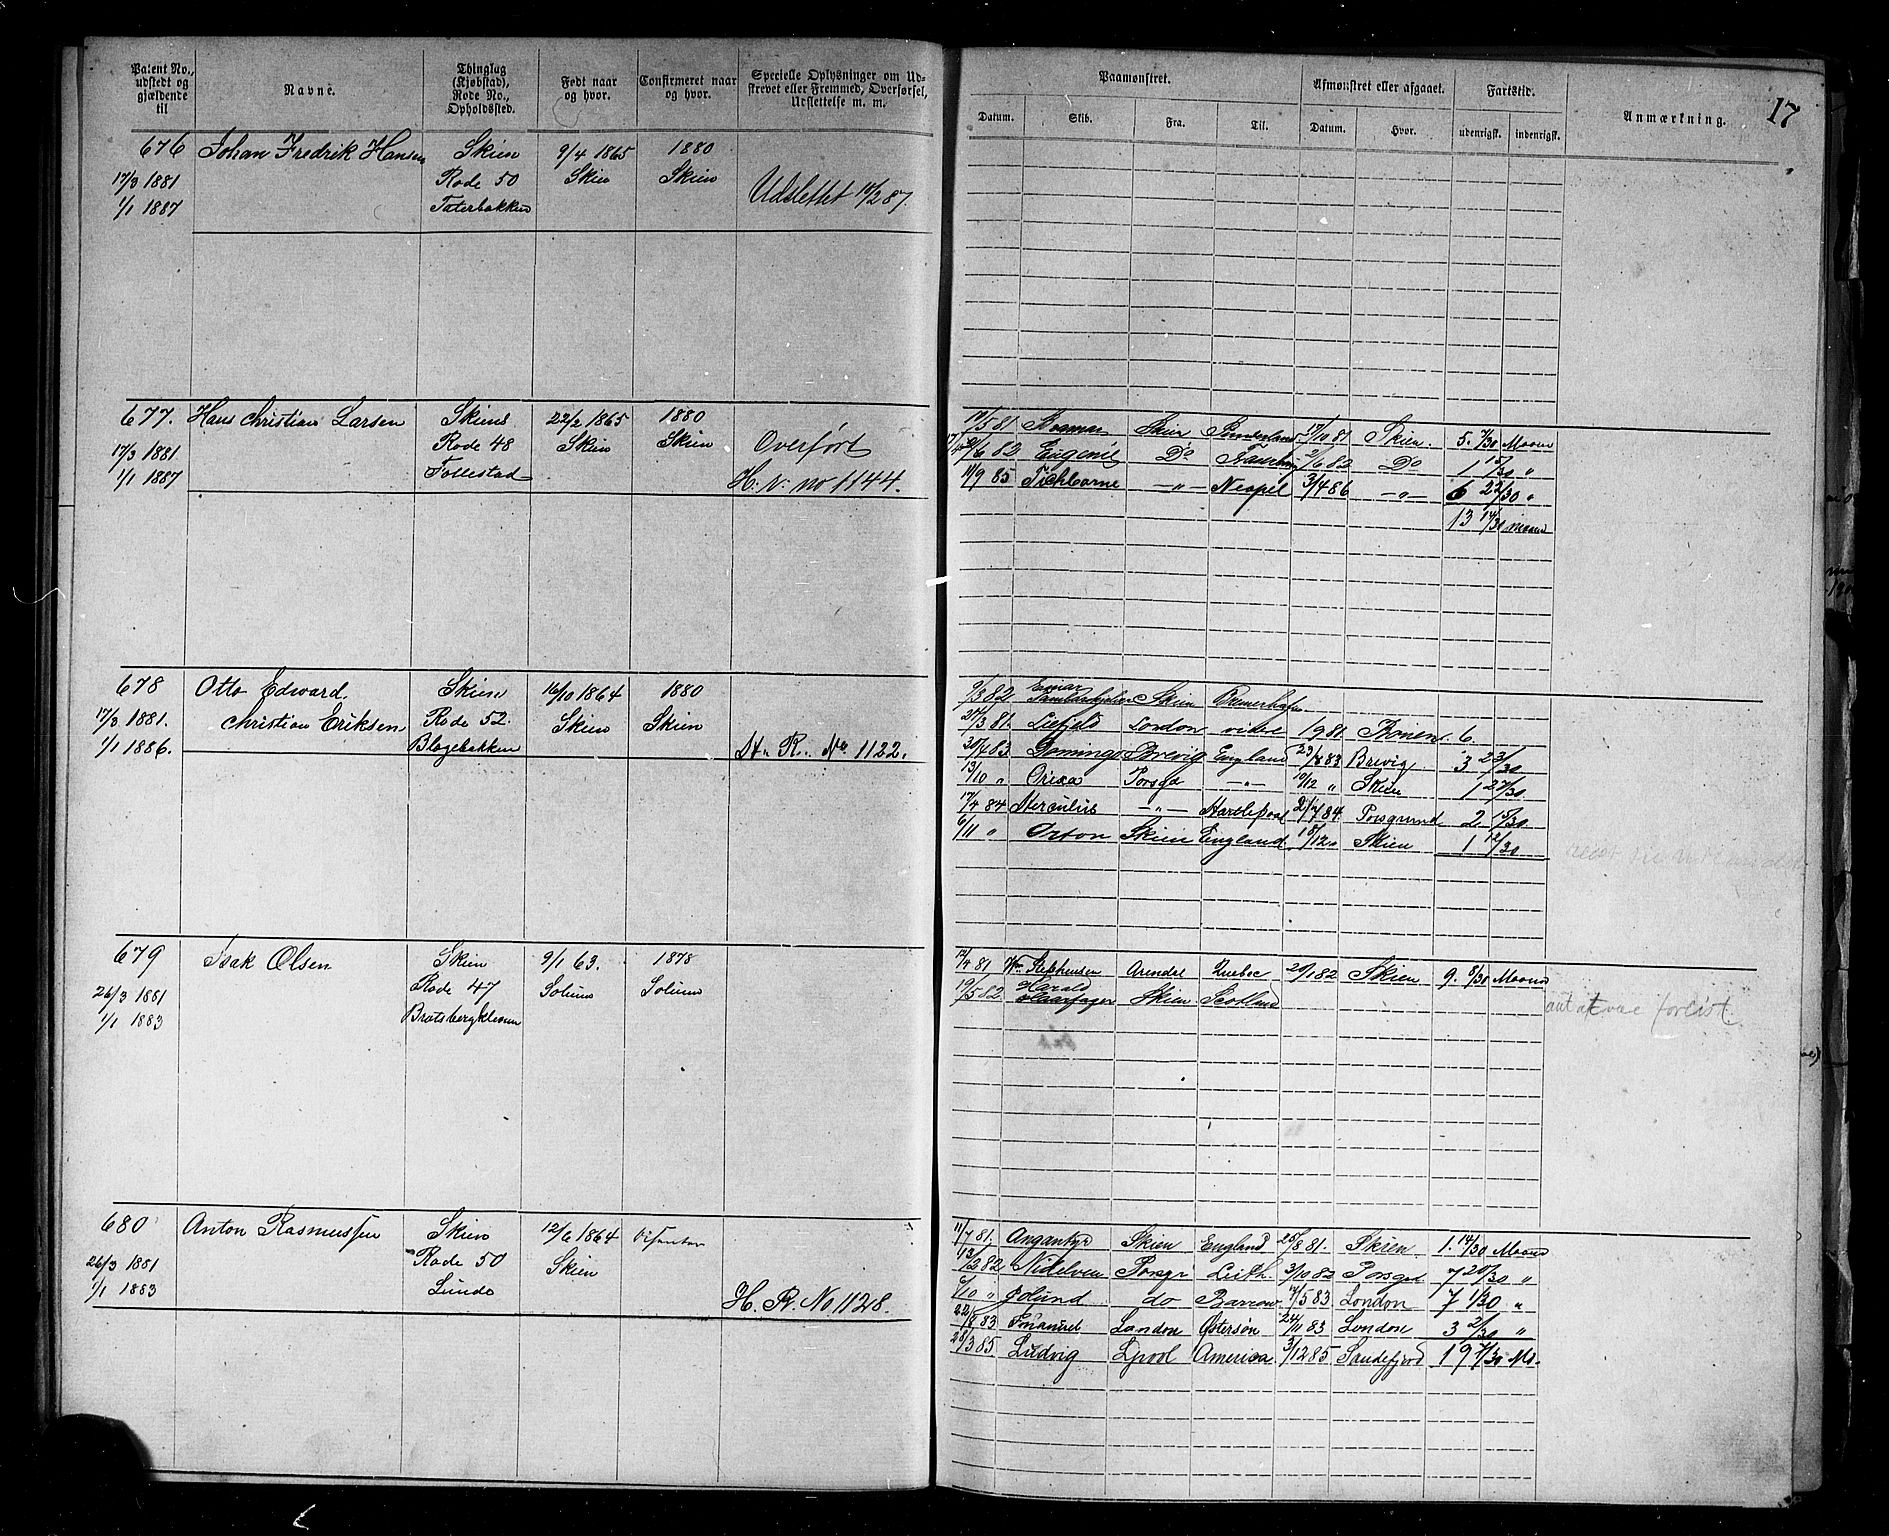 Patent No., udstedt og gjældende til
Navne.
Thinglag (Kjøbstad), Rode No., Opholdssted.
Født naar og hvor.
Confirmeret naar og hvor.
Specielle Oplysninger om Udskrevet eller Fremmed, Overførsel, Udslettelse m. m.
Paamønstret.
Datum. Skib. Fra. Til.
Afmønstret eller afgaaet.
Datum. Hvor.
Fartstid.
udenrigsk. indenrigsk.
Anmærkning.
17
676 Johan Fredrik Hansen Skien 9/4 1865 1880
17/3 1881 Rode 50 Skien Skien
1/1 1887 Taterbakken Udslettet 87.
677. Hans Christian Larsen Skien 22/2 1865 1880
17/3 1881 Rode 48 Skien Skien Overført
1/1 1887 Follestad H. N. No 1144.
81 Skien Sunderland 17/10 81 Skien. 5. 7/30 Maan
82 Eugenie Do 2/6 82 Do 1 15/30 "
11/9 85 Tichborne —"— Neapel 3/4 86 —"— 6 22/30 "
13 14/30 Maan
678 Otto Edward Skien 16/10 1864 1880
17/3 1881. Christian Eriksen Rode 52. Skien Skien
1/1 1886. Blegebakken H. R. No 1122.
9/3 82 Skien Bremerhafen
27/3 81. London 6
20/4 83 Domingo Brevig England 83 Brevig 3 23/30
13/10 " Orixa Porsgd —"— 10/12 " Skien 1 27/30
17/4 84 Herculus —"— Hartlepool 2/7 84. Porsgrund 2 15/30
6/11 " Orton Skien England 18/12 " Skien 1 12/30
679 Isak Olsen Skien 9/1 63. 1878
26/3 1881 Rode 47 Solum Solum
1/1 1883 Bratsbergkleven
12/4 81 Stephensen Arendal Quebec 20/1 82 Skien 9. 8/30 Maan
19/5 82 Harald Haarfager Skien Scotland
forlist.
680 Anton Rasmussen Skien 12/6 1864
26/3 1881 Rode 50 Skien
1/1 1883 Lunde H. R. No 1128.
11/7 81. Angantyr Skien England 25/8 81. Skien. 1. 14/30 Maan
13/2 82 Nidelven Porsgr Leith 3/10 82 Porsgd 7 20/30 "
6/10 " do Barrow 7/5 83 London 7 1/30 "
22/8 83 Emanuel London Østersøn 24/11 83 London 3 2/30 "
28/3 85 Ludvig Lpool America 3/12 85 Sandefjord 19 7/30 Mo.